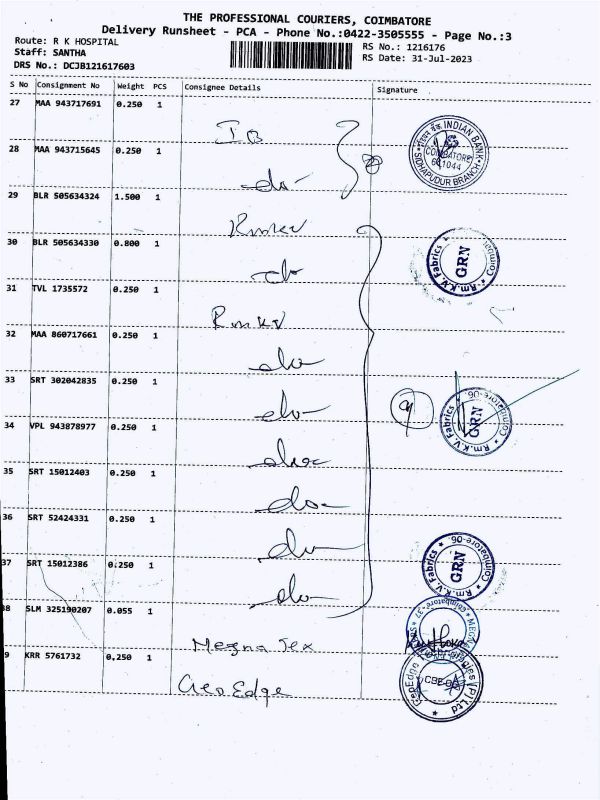 THE PROFESSIONAL COURIERS, COIMBATORE
Delivery Runsheet - PCA - Phone No.:0422-3505555 - Page No.:3
Route: R K HOSPITAL
Staff: SANTHA
DRS No.: DCJB121617603
RS No.: 1216176
RS Date: 31-Jul-2023
S No Consignment No Weight PCS Consignee Details Signature
27 MAA 943717691 0.250 1 IB
28 MAA 943715645 0.250 1 do
29 BLR 505634324 1.500 1 Rmkv
30 BLR 505634330 0.800 1 do
31 TVL 1735572 0.250 1 RmKV
32 MAA 860717661 0.250 1 do
33 SRT 302042835 0.250 1 do
34 VPL 943878977 0.250 1
35 SRT 15012403 0.250 1 do
36 SRT 52424331 0.250 1 do
37 SRT 15012386 0.250 1 do
38 SLM 325190207 0.055 1 Megna Tex
9 KRR 5761732 0.250 1 Geo Edge
INDIAN BANK
COIMBATORE
641044
SIDHAPUDUR BRANCH
Rm.K.V. Fabrics
GRN
Coimbatore
9
Rm.K.V Fabrics
GRN
Coimbatore-06.
Rm.K.V Fabrics
GRN
Coimbatore-06.
Coimbatore-37
(P) Ltd